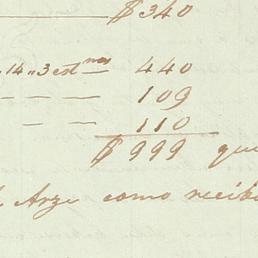 $ 340
14 " 3 est nos 440
109
110
$ 999 que
Arze como recib